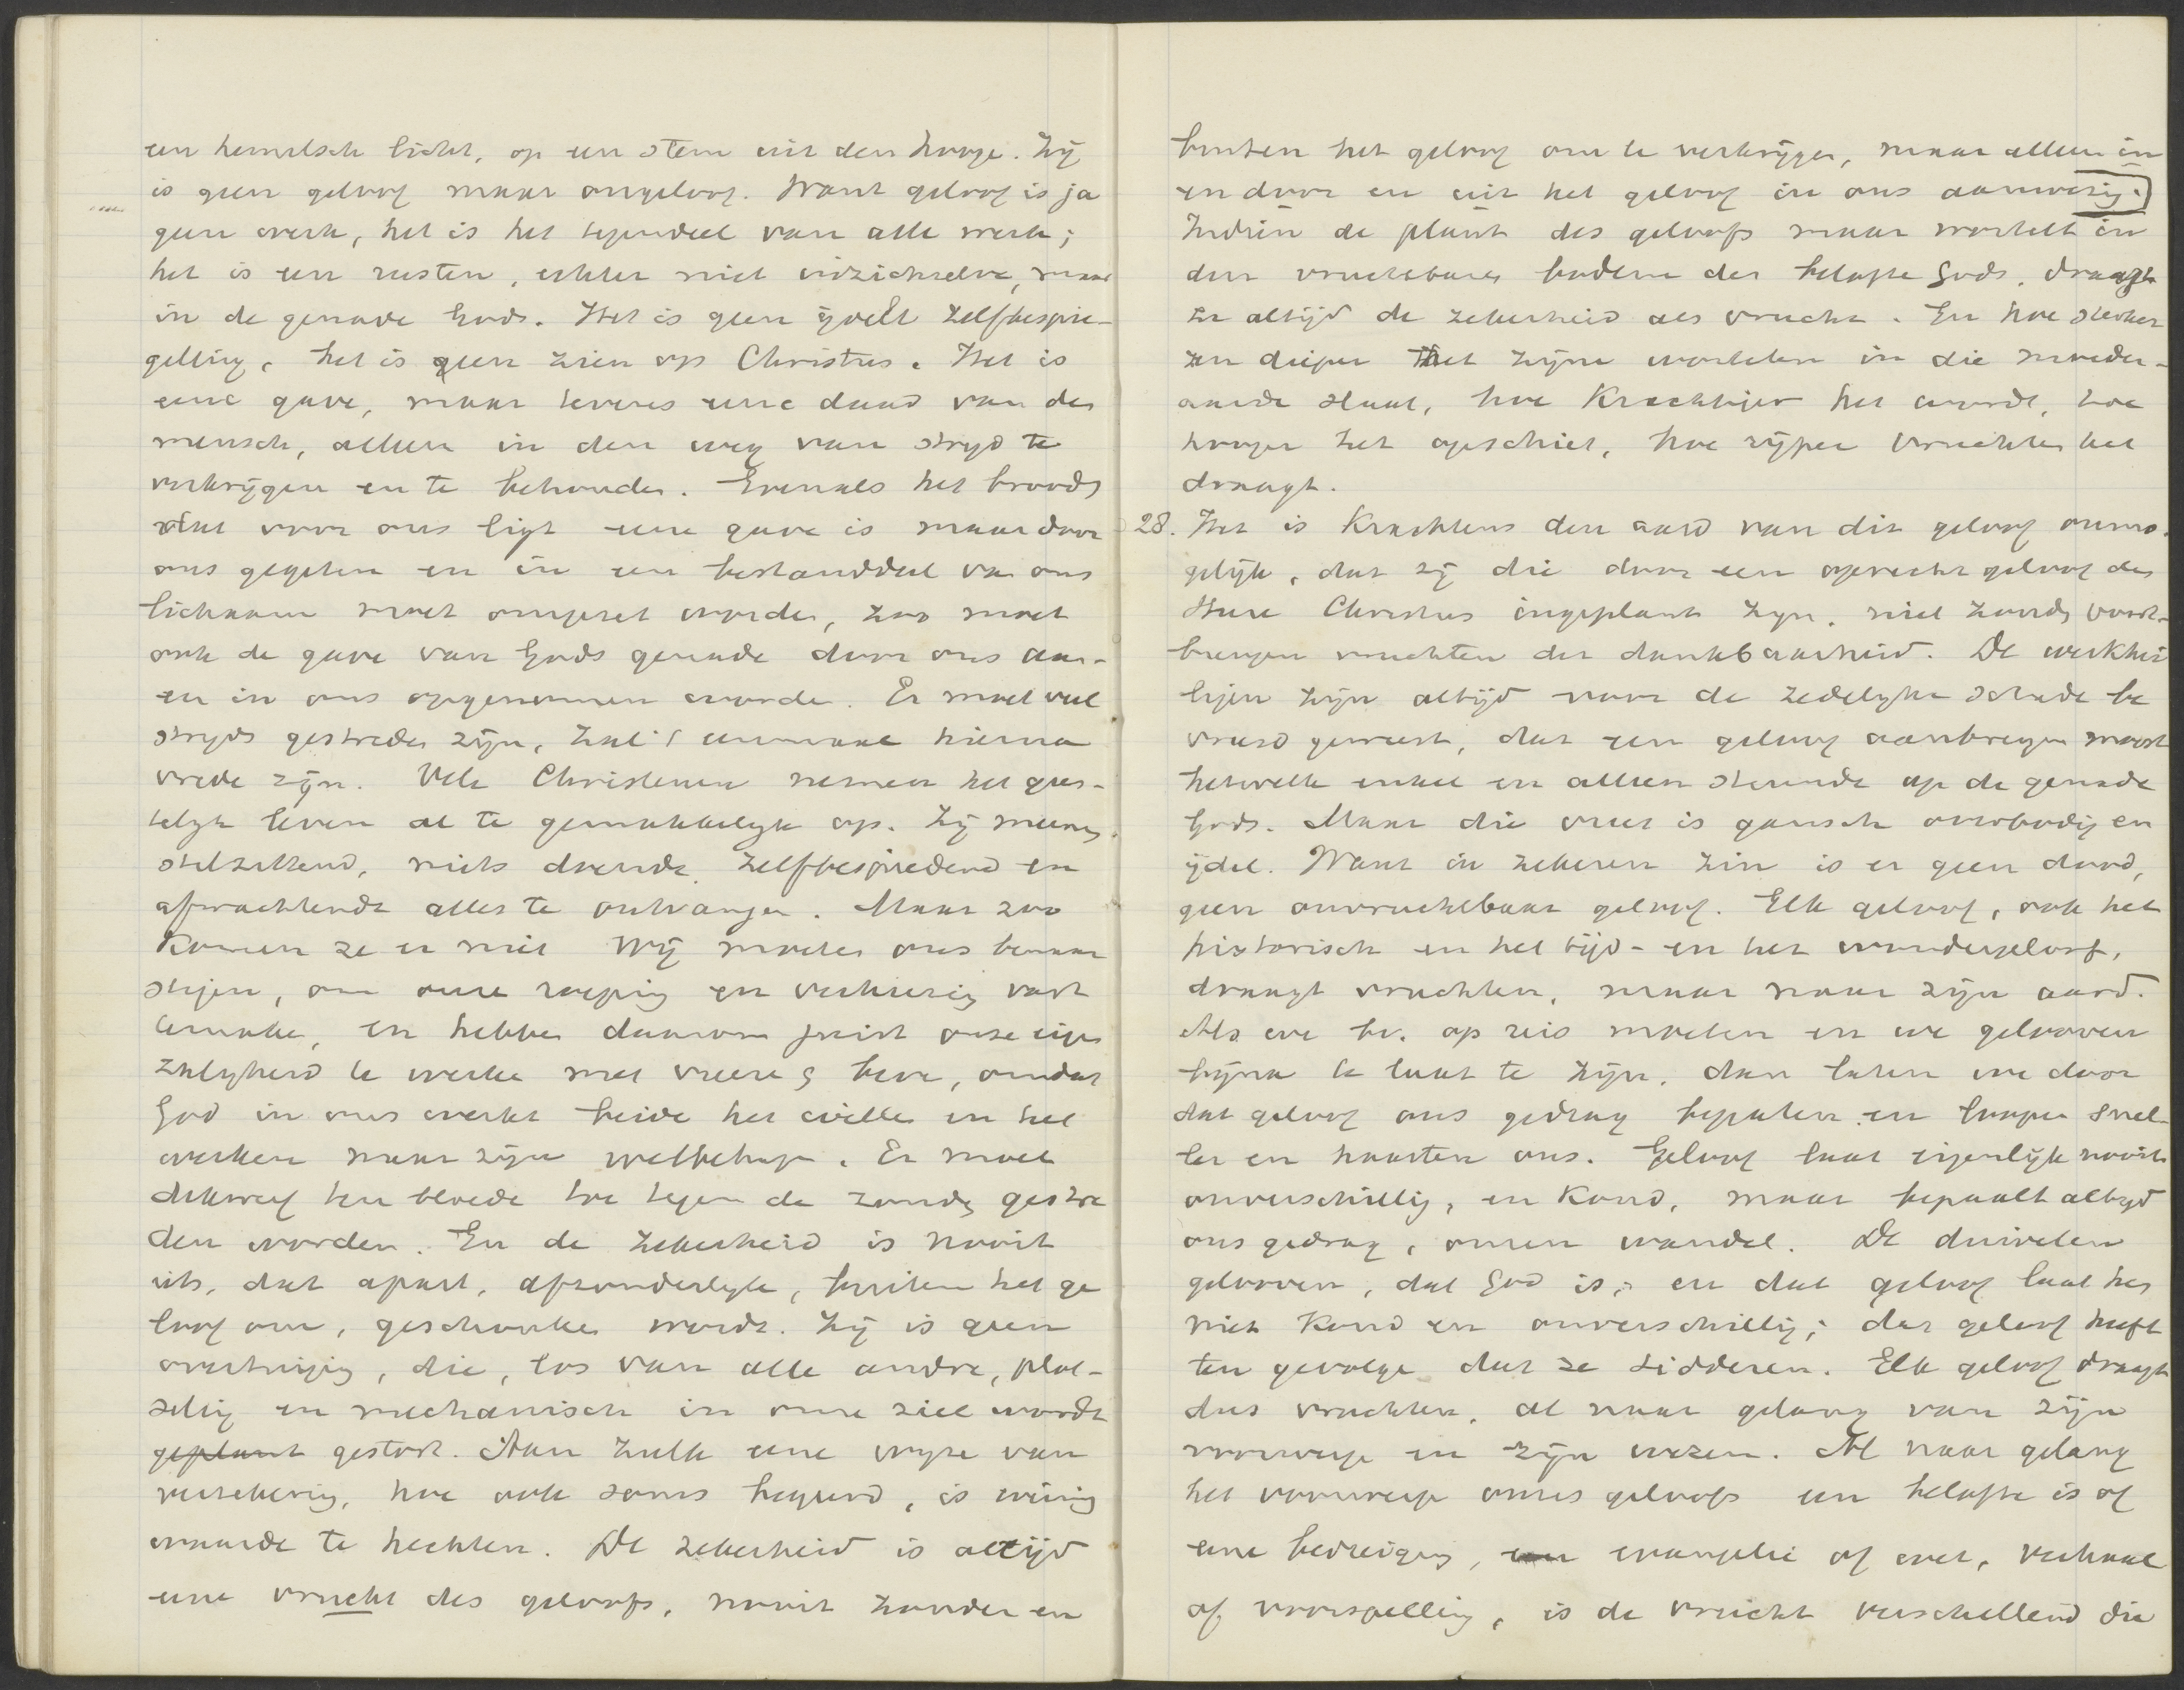 een hemelsch licht, op een stem uit den hooge. Zij
is geen geloof maar ongeloof. Want geloof is ja
geen werk, het is het tegendeel van alle werk;
het is een rusten, echter niet in zichzelve, maar
in de genade Gods. Het is geen ijdele zelfbespie-
geling, het is een zien op Christus. Het is
eene gave, maar tevens eene daad van den
mensch, alleen in den weg van strijd te
verkrijgen en te behouden. Evenals het brood
dat voor ons ligt eene gave is maar door
ons gegeten en in een bestanddeel van ons
lichaam moet omgezet worden, zoo moet
ook de gave van Gods genade door ons aan-
en in ons opgenomen worden. Er moet veel
strijds gestreden zijn, zal 't eenmaal hierna
vrede zijn. Vele Christenen nemen het gees-
telijk leven al te gemakkelijk op. Zij meenen
stilzittend, niets doende, zelfbespiedend en
afwachtende alles te ontvangen. Maar zoo
komen ze er niet Wij moeten ons benaar
stigen, om onze roeping en verkiezing vast
te maken, en hebben daarom juist onze eigen
zaligheid te werken met vreeze & beve, omdat
God in ons werkt beide het willen en het
werken naar zijn welbehagen. Er moet
dikwerf ten bloede toe tegen de zonde gestre
den worden. En de zekerheid is nooit
iets, dat apart, afzonderlijk, buiten het ge
loof om, geschonken wordt. Zij is geen
overtuiging, die, los van alle andre, plot-
seling en mechanisch in onze ziel wordt
geplant gestort. Aan zulk eene wijze van
verzekering, hoe ook soms begeerd, is weinig
waarde te hechten. De zekerheid is altijd
eene vrucht des geloofs, nooit zonder en
buiten het geloof om te verkrijgen, maar alleen in
en door en uit het geloof in ons aanwezig.
Indien de plant des geloofs maar wortelt in
den vruchtbaren bodem der belofte Gods, draagt
ze altijd de zekerheid als vrucht. En hoe sterker
en dieper het zijne wortelen in die moeder-
aarde slaat, hoe krachtiger het wordt, hoe
hooger het opschiet, hoe rijper vruchten het
draagt.
28. Het is krachtens den aard van dit geloof onmo-
gelijk, dat zij die door een oprecht geloof den
Heere Christus ingeplant zijn, niet zouden voort-
brengen vruchten der dankbaarheid. De werkhei
ligen zijn altijd voor de zedelijke schade be
vreesd geweest, dat een geloof aanbrengen moest
hetwelk enkel en alleen steunde op de genade
Gods. Maar die vrees is gansch overbodig en
ijdel. Want in zekeren zin is er geen dood,
geen onvruchtbaar geloof. Elk geloof, ook het
historisch en het tijd- en het wondergeloof,
draagt vruchten, maar naar zijn aard.
Als we bv. op reis moeten en we gelooven
bijna te laat te zijn, dan laten we door
dat geloof ons gedrag bepalen en loopen snel-
ler en haasten ons. Geloof laat eigenlijk nooit
onverschillig, en koud, maar bepaalt altijd
ons gedrag, onzen wandel. De duivelen
gelooven, dat God is; en dat geloof laat hen
niet koud en onverschillig; dat geloof heeft
ten gevolge dat ze sidderen. Elk geloof draagt
dus vruchten, al naar gelang van zijn
voorwerp en zijn wezen. Al naar gelang
het voorwerp onzes geloofs een belofte is of
eene bedreiging, een evangelie of wet, verhaal
of voorspelling, is de vrucht verschillend die